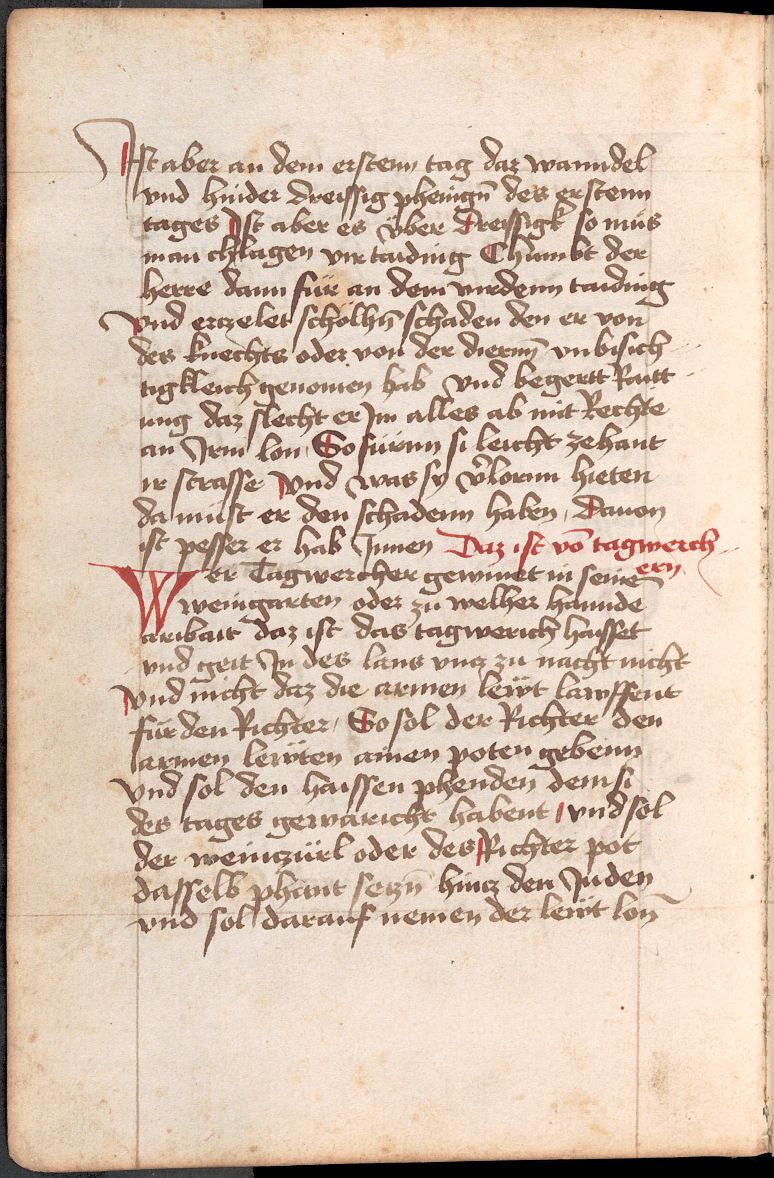 Ist aber an dem erstenn tag daz wanndel
vnd hinder dreissig phenign̄ des erstenn
tages Ist aber es v̈ber dreissigk so mus
man chlagen vir taiding Chumbt der
herre dann für an dem virdenn taiding
vnd erczelet scholhn̄ schaden den er von
des knechts oder von der diernn̄ vnbisich
tigkleich genomen hab vnd begertt Raitt
ung daz slecht er Im alles ab mit Rechte
an Irm lon So fürnn si leicht zehant
ir strasse vnd was sy v̈lornn hieten
da must er den schadenn haben, Dauon
ist pesser er hab Innen Daz ist vō tagwerch
ern
Wer Tagwercher gewinet in seinē
weingarten oder zu welher hannde
aribait daz ist das tagwerich haisset
vnd geit In des lans vncz zu nacht nicht
vnd nicht daz die armen lewt lawffent
für den Richter, So sol der Richter den
armen lewten ainen poten gebenn
vnd sol den haissen phenden dem si
des tages gewaricht habent, vnd sol
der weinczürl oder des Richter pot
dasselb phant seczn̄ hincz den Juden
vnd sol darauf nemen der lewt lon̄